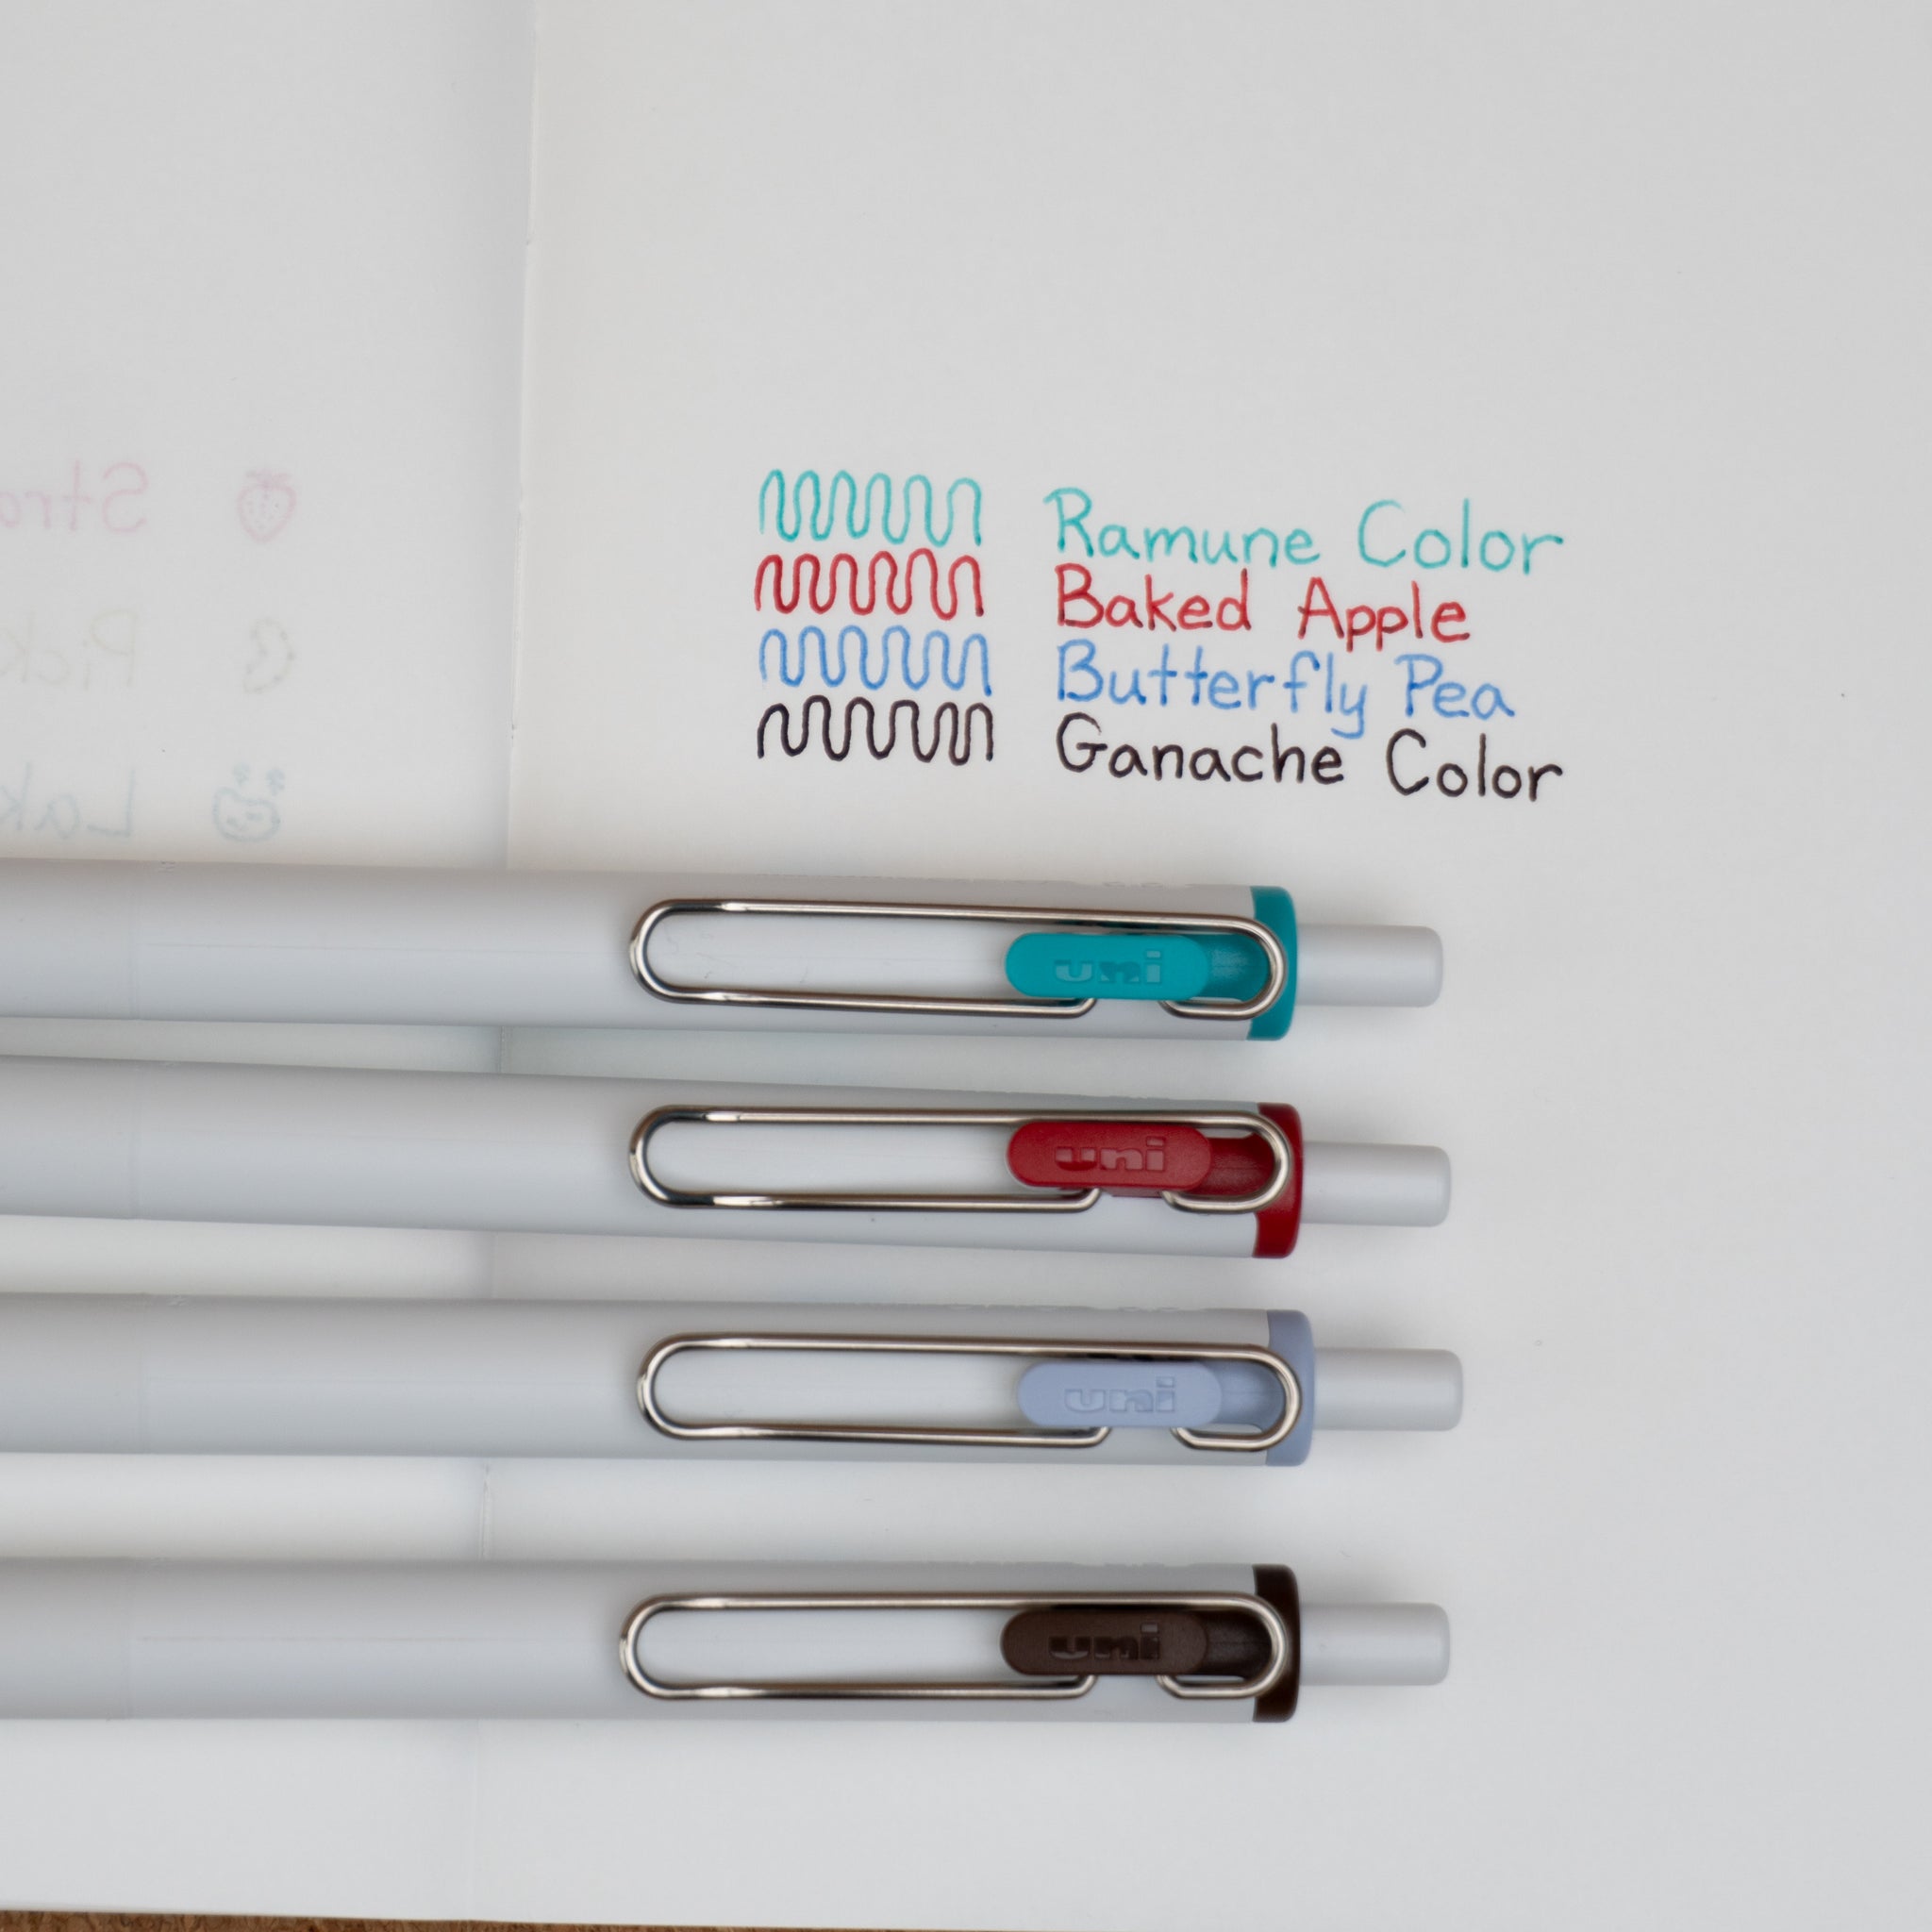 Ramune Color
Baked Apple
Butterfly Pea
Ganache Color
uni
uni
uni
uni